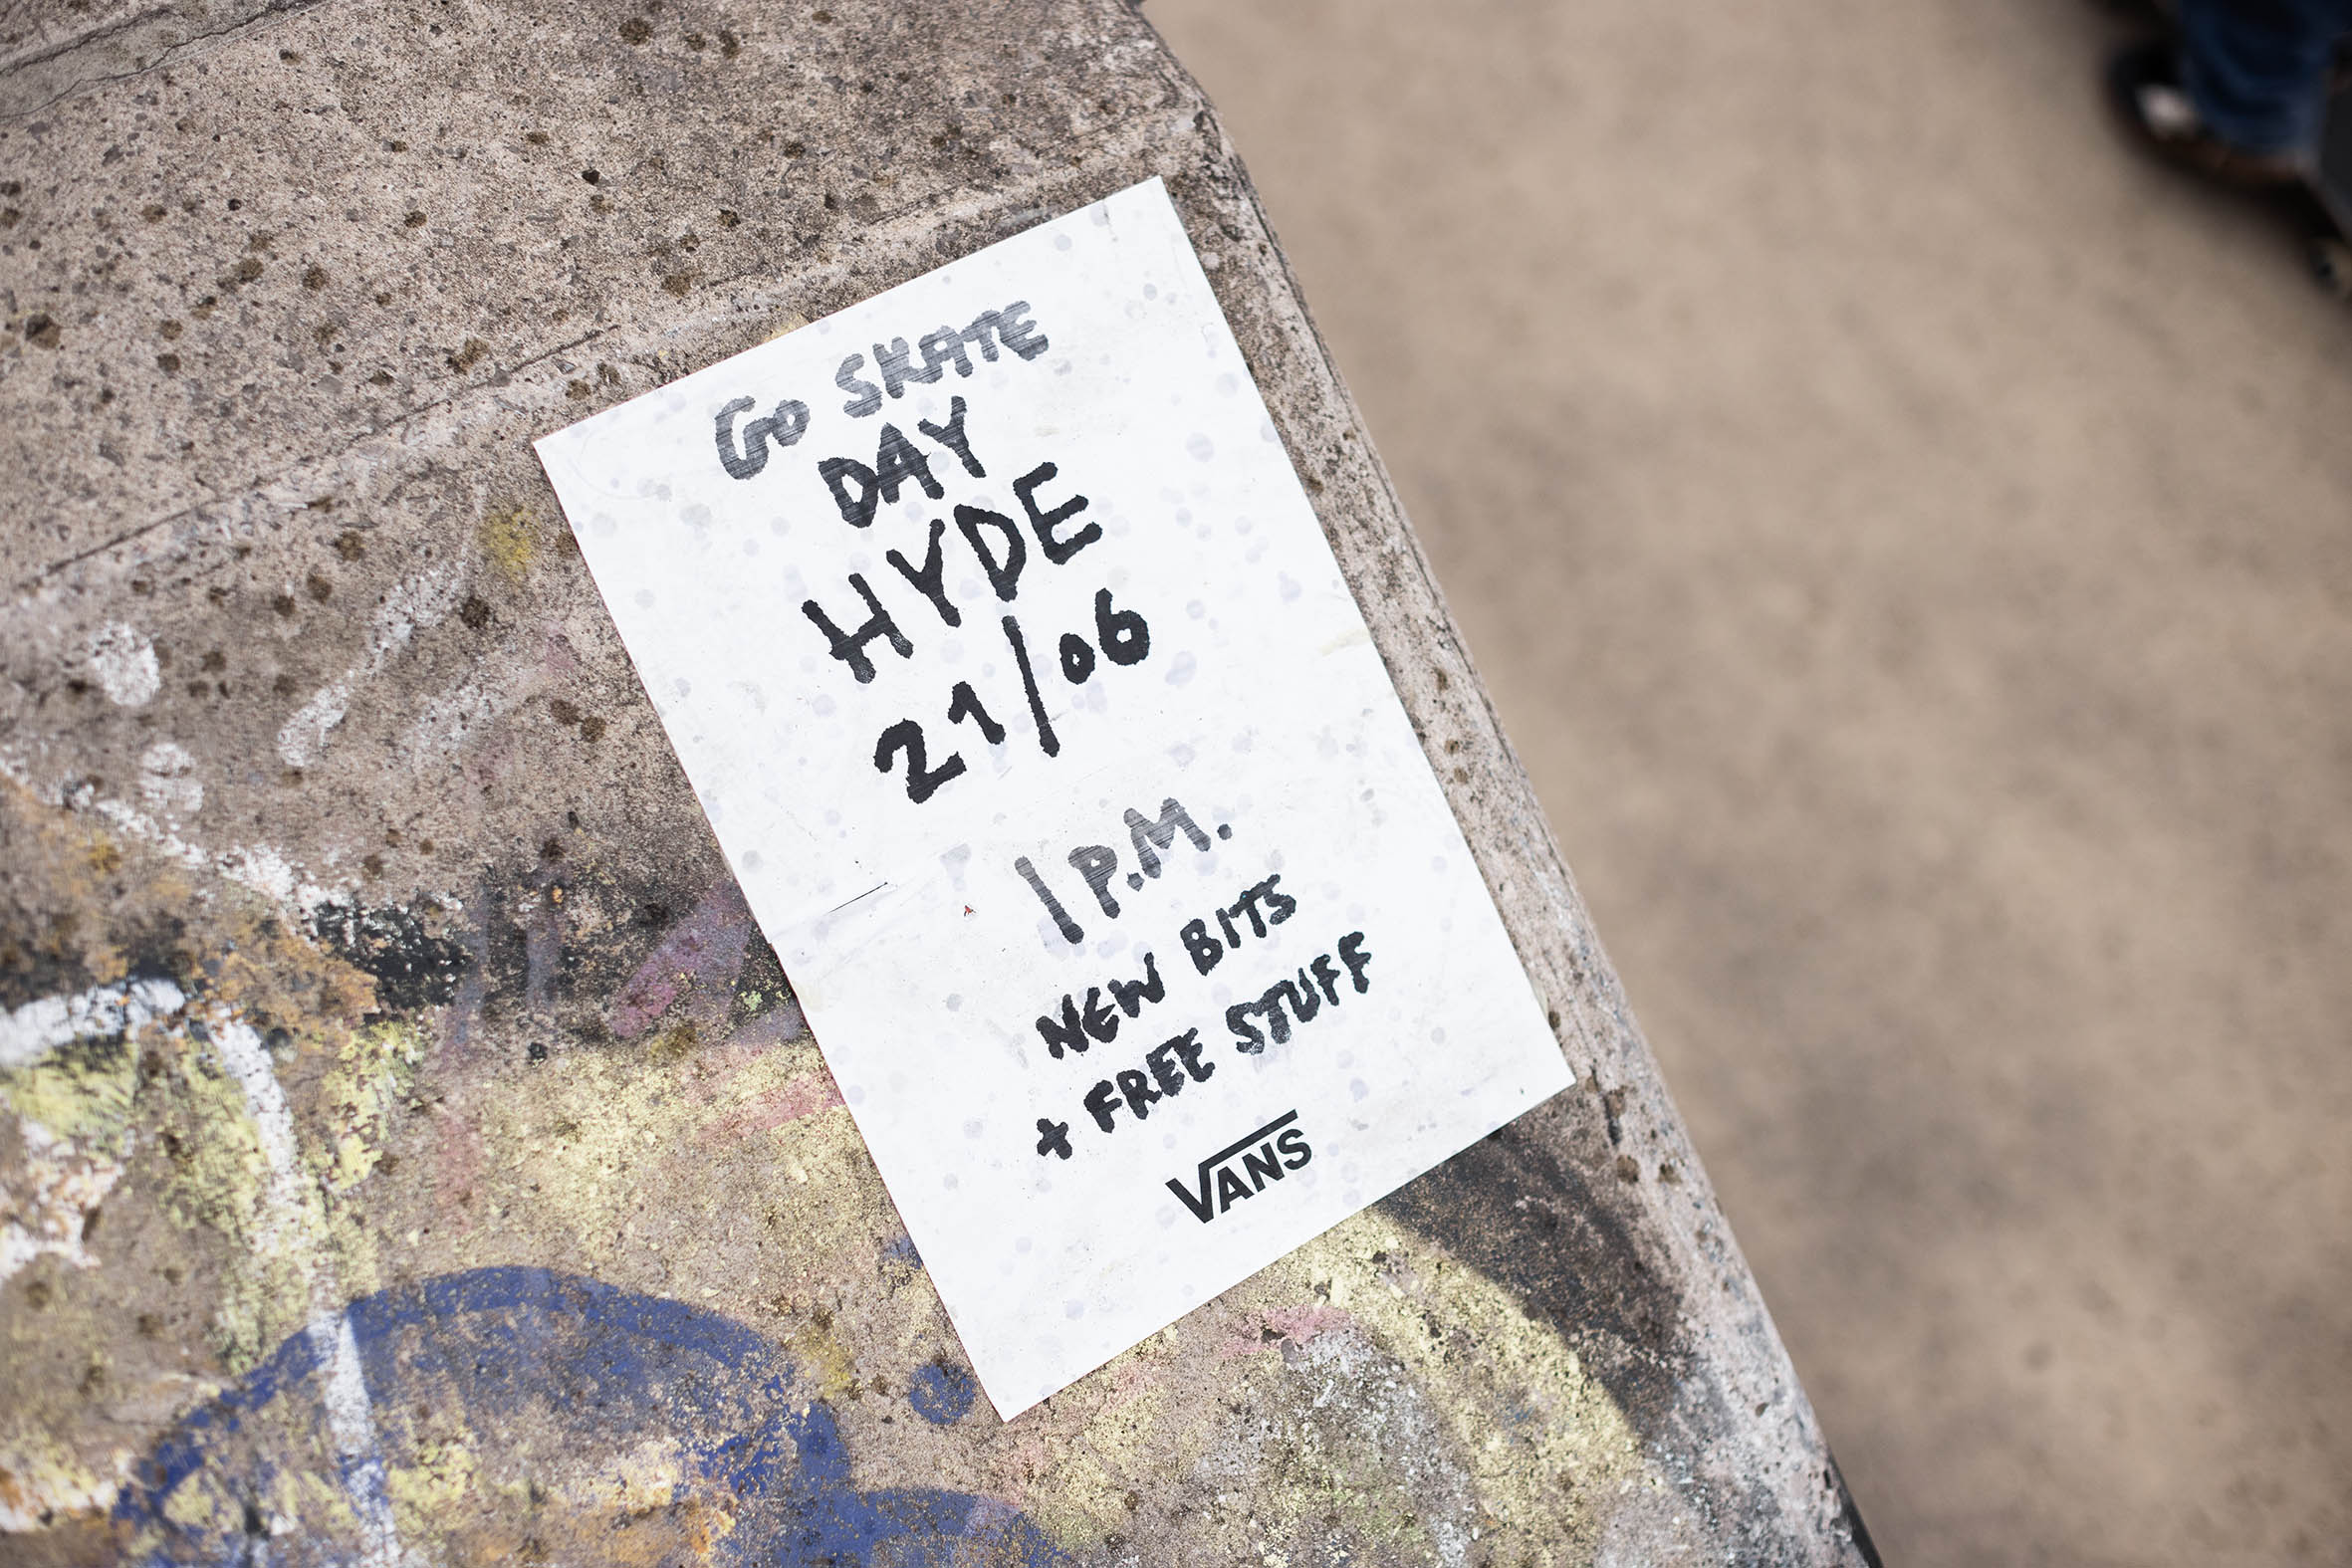 GO SKATE
DAY
HYDE
21/06
1 P.M.
NEW BITS
+ FREE STUFF
VANS